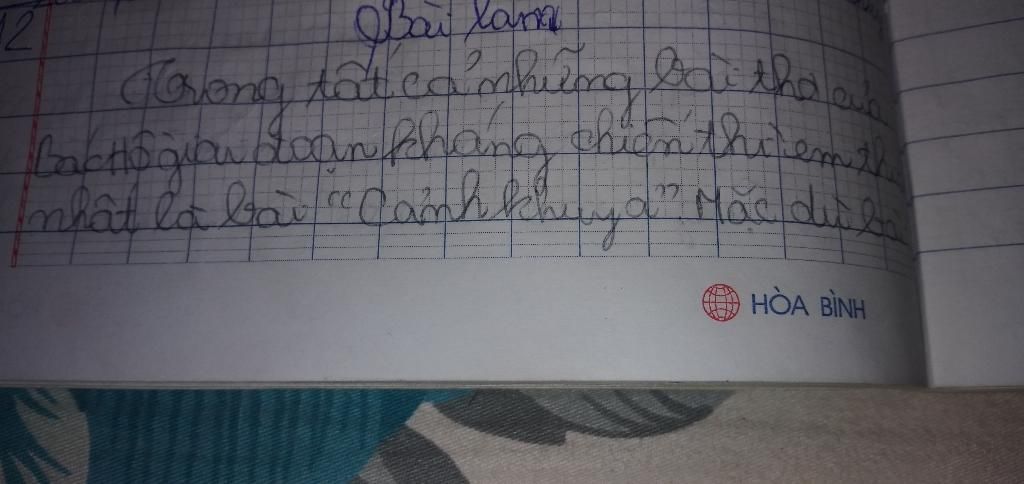 12
Bài làm
Trong tất cả những bài thơ của
Bác Hồ giai đoạn kháng chiến thì em
nhất là bài "Cảnh khuya". Mặc dù bài
HÒA BÌNH